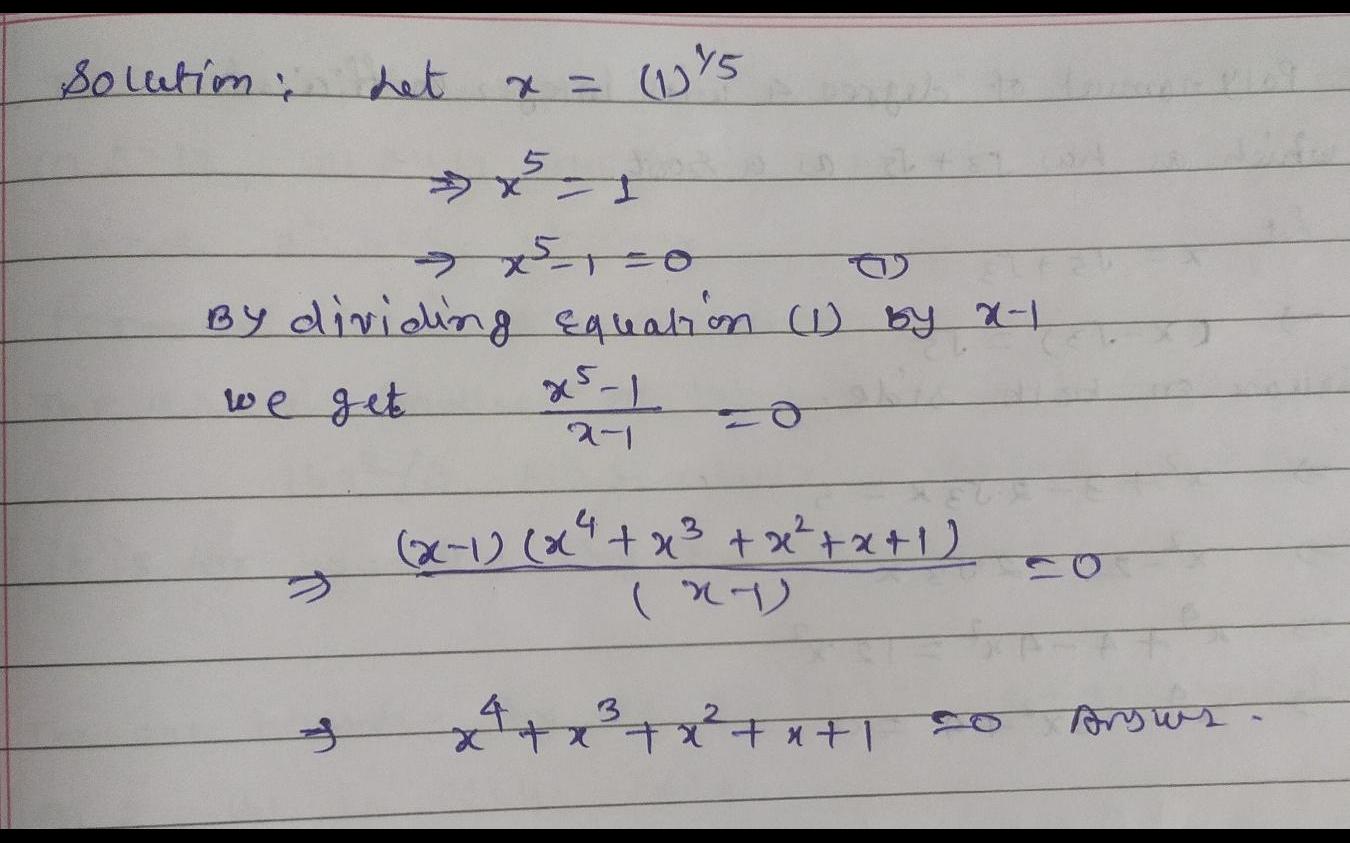 Solution: Let x = (1)^1/5
⇒ x^5 = 1
⇒ x^5 - 1 = 0 (1)
By dividing Equation (1) by x-1
we get (x^5 - 1)/(x-1) = 0
⇒ (x-1)(x^4 + x^3 + x^2 + x + 1)/(x-1) = 0
⇒ x^4 + x^3 + x^2 + x + 1 = 0 Answer.